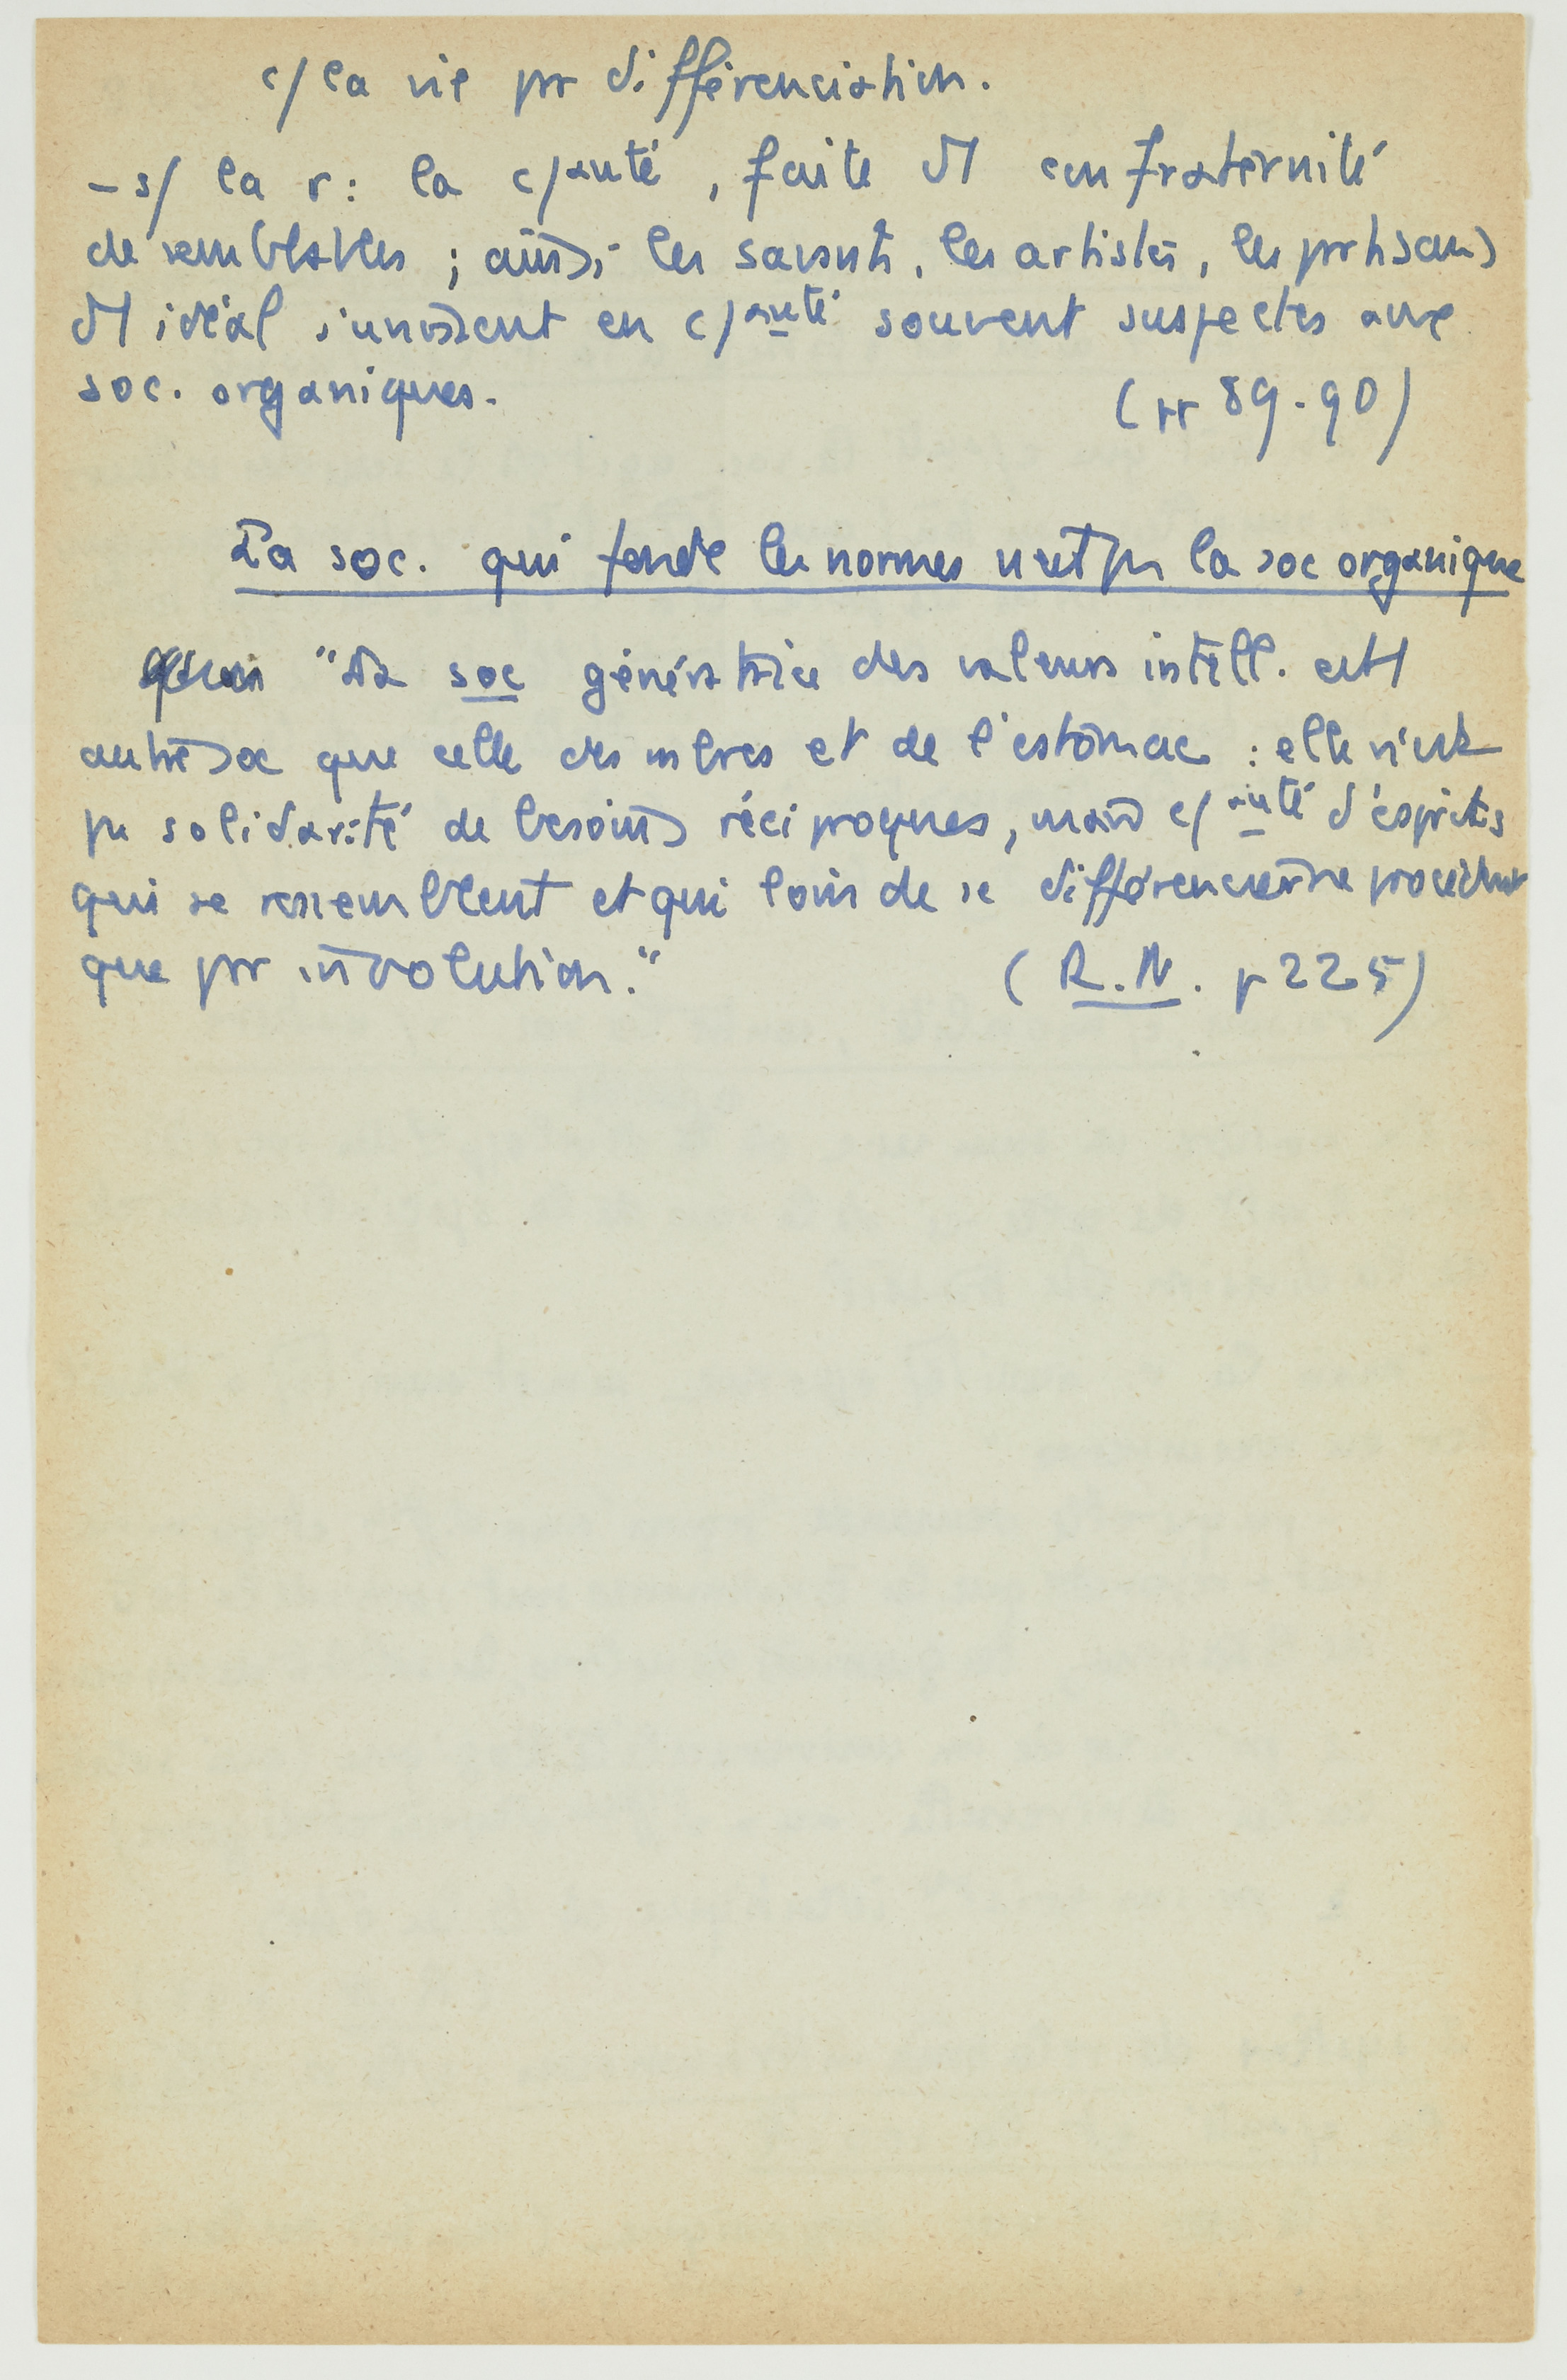 c/ la vie pr différenciation.
- s/ la r : la c/auté, faite d'1 confraternité
de semblables ; ainsi les savants, les artistes, les partisans
d'1 idéal s'unissent en c/auté souvent suspectes aux
soc. organiques. (pp 89-90)
La soc. qui fonde les normes n'est pas la soc organique
"La soc génératrice des valeurs intell. est
autre que celle des mbres et de l'estomac : elle n'est
pas solidarité de besoins réciproques, mais c/auté d'esprits
qui se ressemblent et qui loin de se différencier ne procèdent
que par involution." (R.N. p 225)